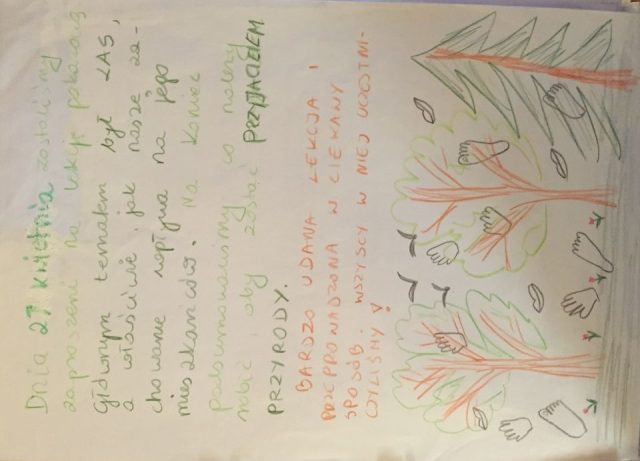 Dnia 27 kwietnia zostaliśmy
zaproszeni na lekcję pokazową
Głównym tematem był LAS,
a właściwie jak nasze za-
chowanie wpływa na jego
mieszkańców. Na koniec
podsumowaliśmy co należy
robić, aby zostać PRZYJACIELEM
PRZYRODY.
BARDZO UDANA LEKCJA I
PRZEPROWADZONA W CIEKAWY
SPOSÓB. WSZYSCY W NIEJ UCZESTNI-
CZYLIŚMY!